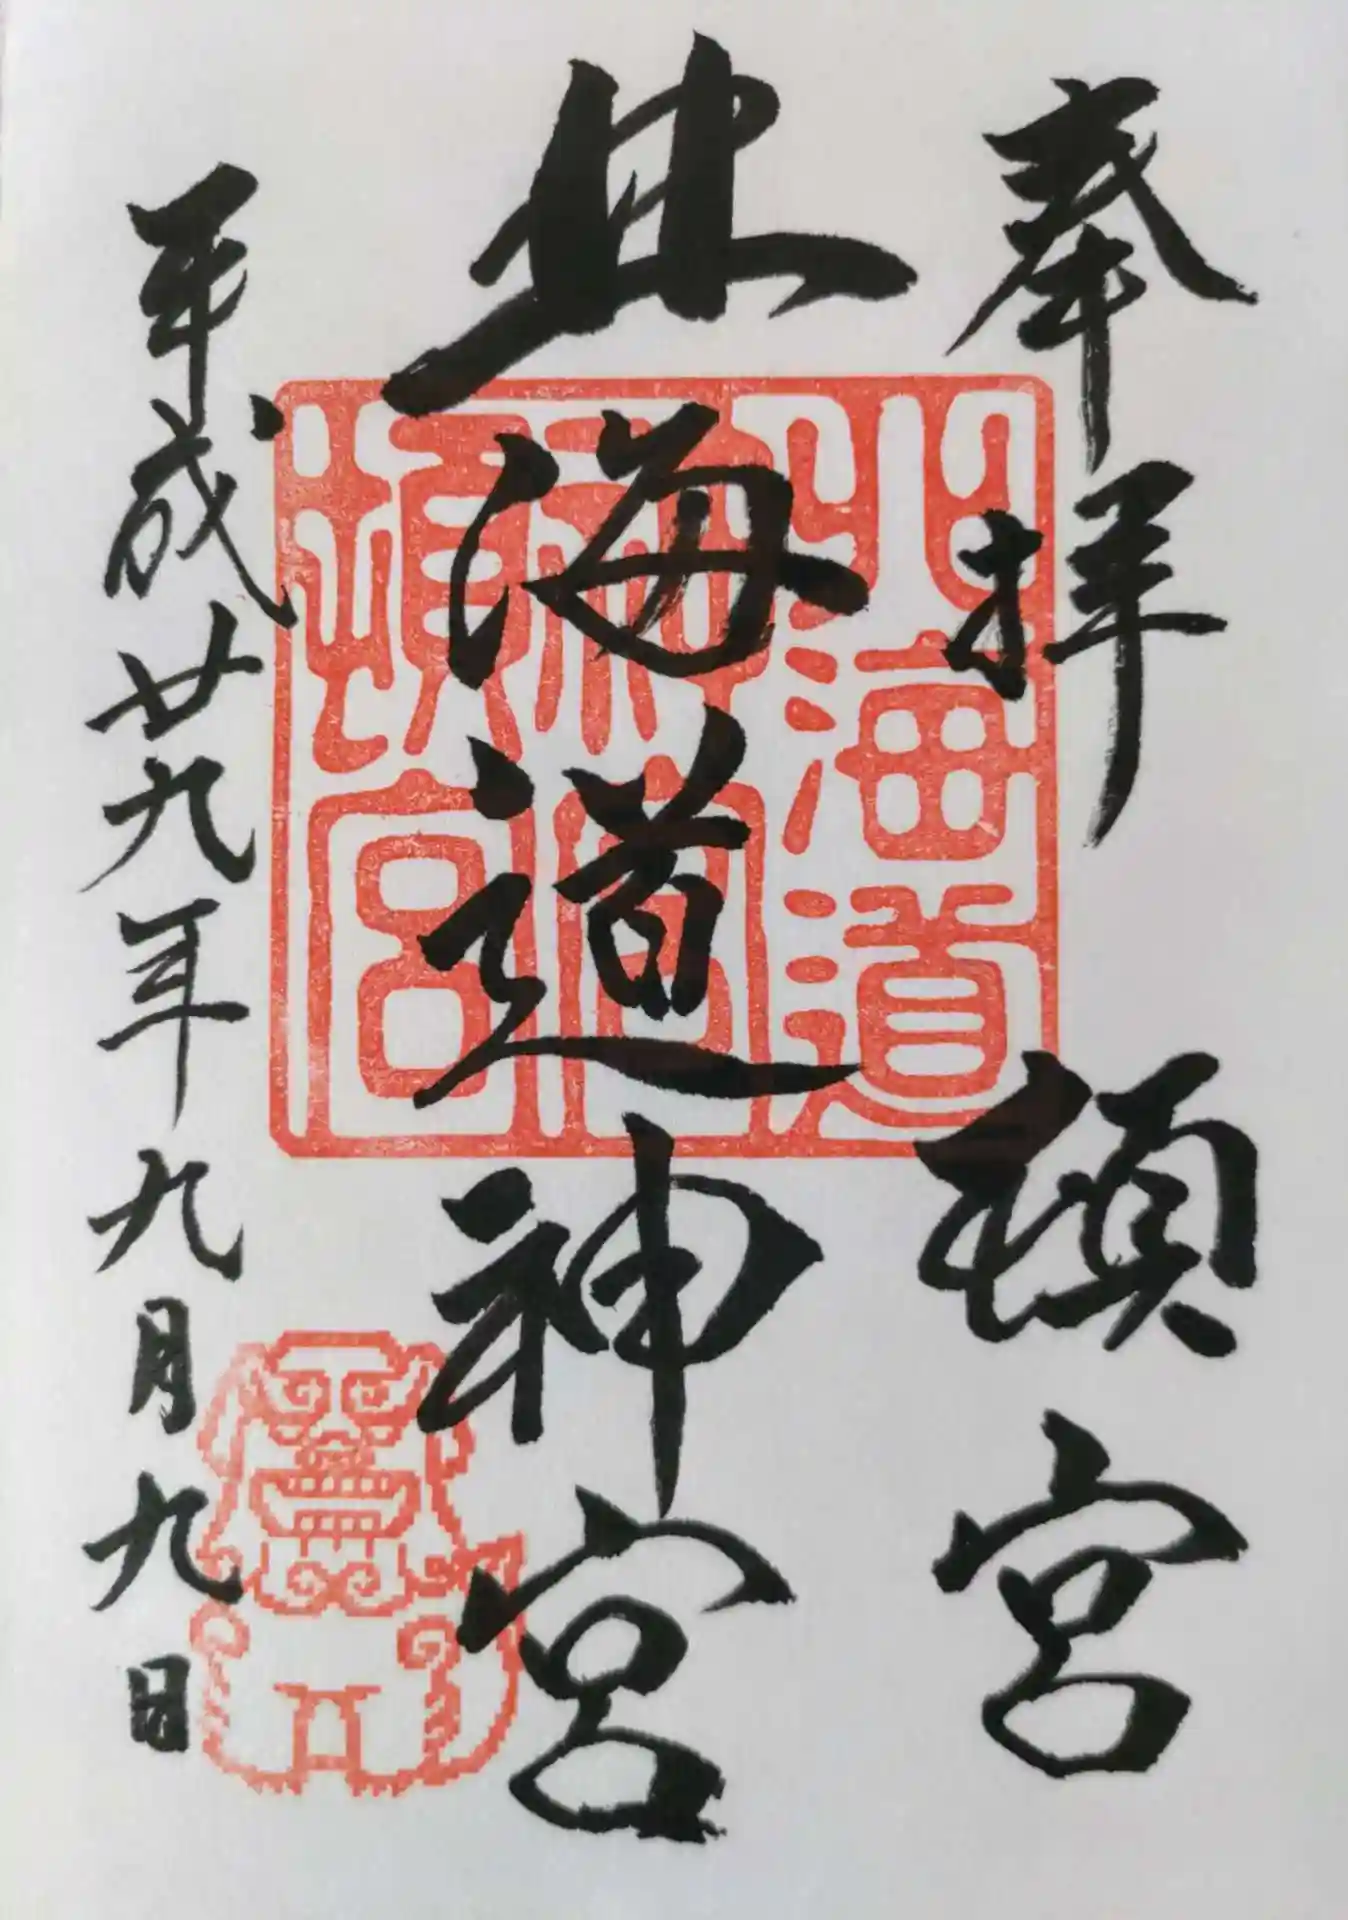 奉拝 頓宮
北海道神宮
平成廿九年九月九日
北海道
神宮
頓宮